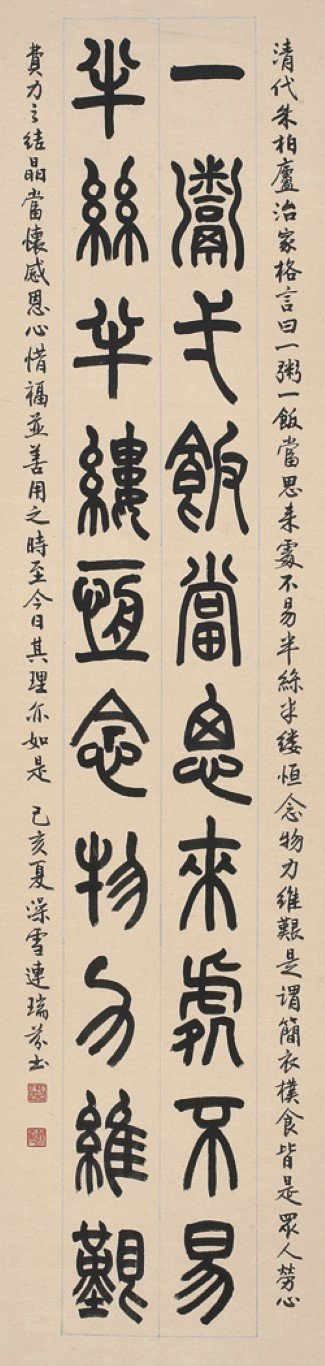 清代朱柏廬治家格言曰一粥一飯當思来處不易半絲半縷恒念物力維艱是謂簡衣樸食皆是眾人勞心
一鬻弌飯當思來處不易
半絲半縷恆念物力維艱
費力之結晶當懷感恩心惜福並善用之時至今日其理亦如是 己亥夏深雪連瑞芬書